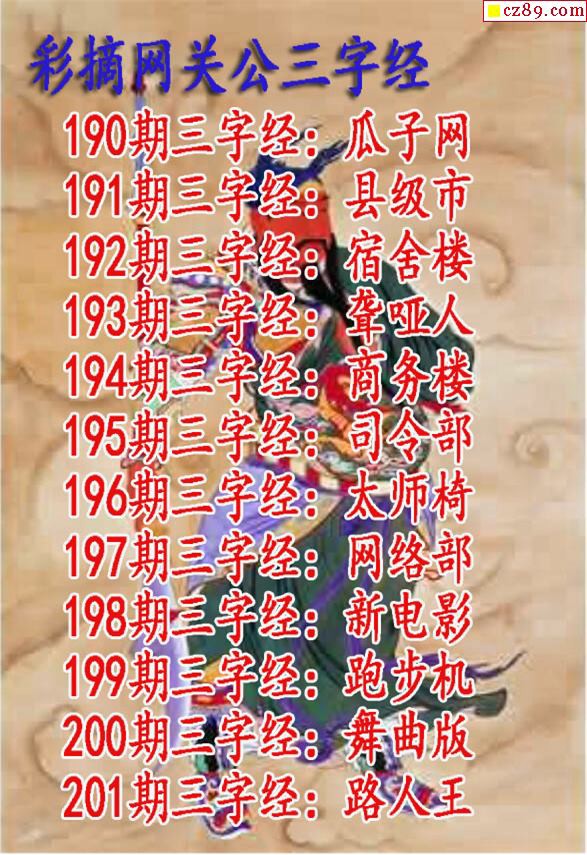 cz89.com
彩摘网关公三字经
190期三字经：瓜子网
191期三字经：县级市
192期三字经：宿舍楼
193期三字经：聋哑人
194期三字经：商务楼
195期三字经：司令部
196期三字经：太师椅
197期三字经：网络部
198期三字经：新电影
199期三字经：跑步机
200期三字经：舞曲版
201期三字经：路人王